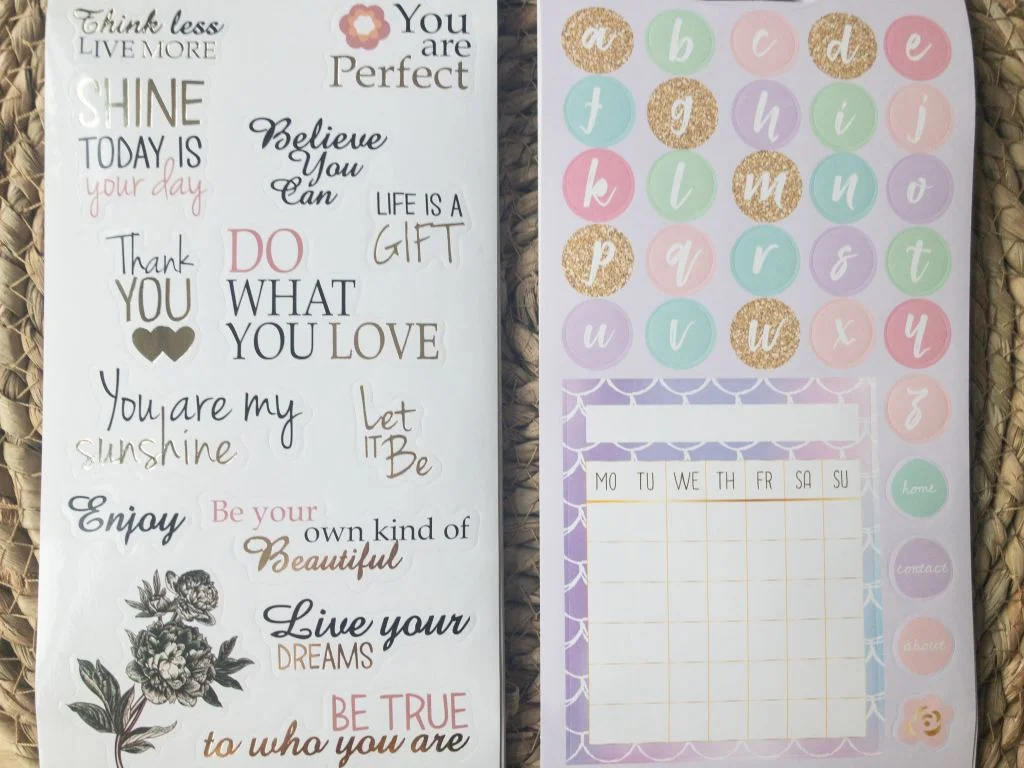 Think less
LIVE MORE
You
are
Perfect
SHINE
TODAY IS
your day
Believe
You
Can
LIFE IS A
GIFT
Thank
YOU
DO
WHAT
YOU LOVE
You are my
sunshine
Let
IT Be
Enjoy
Be your
own kind of
Beautiful
Live your
DREAMS
BE TRUE
to who you are
a b c d e
f g h i j
k l m n o
p q r s t
u v w x y
z
MO TU WE TH FR SA SU
home
contact
about